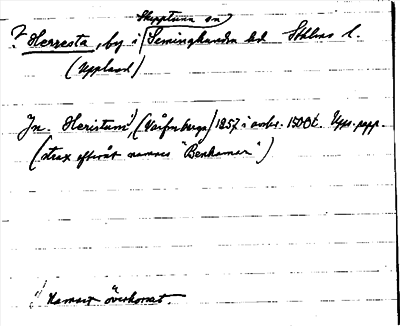 Skepptuna sn
? Herresta, by i Seminghundra hd. Sthlms l.
(Uppland)
In. Heristum¹) (Vårfruberga) 1257 i avskr. 1500t. Upps. papp.
(strax efteråt namnes "Benhamar")
¹) Namnet överkorsat.